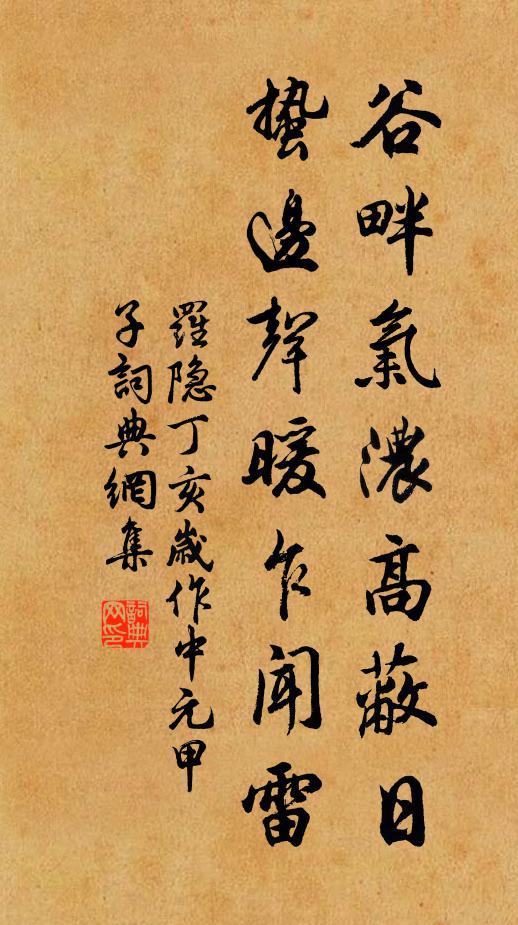 谷畔氣濃高蔽日
蟄邊聲暖乍聞雷
羅隐丁亥歲作中元甲
子詞典網集
詞典
网印